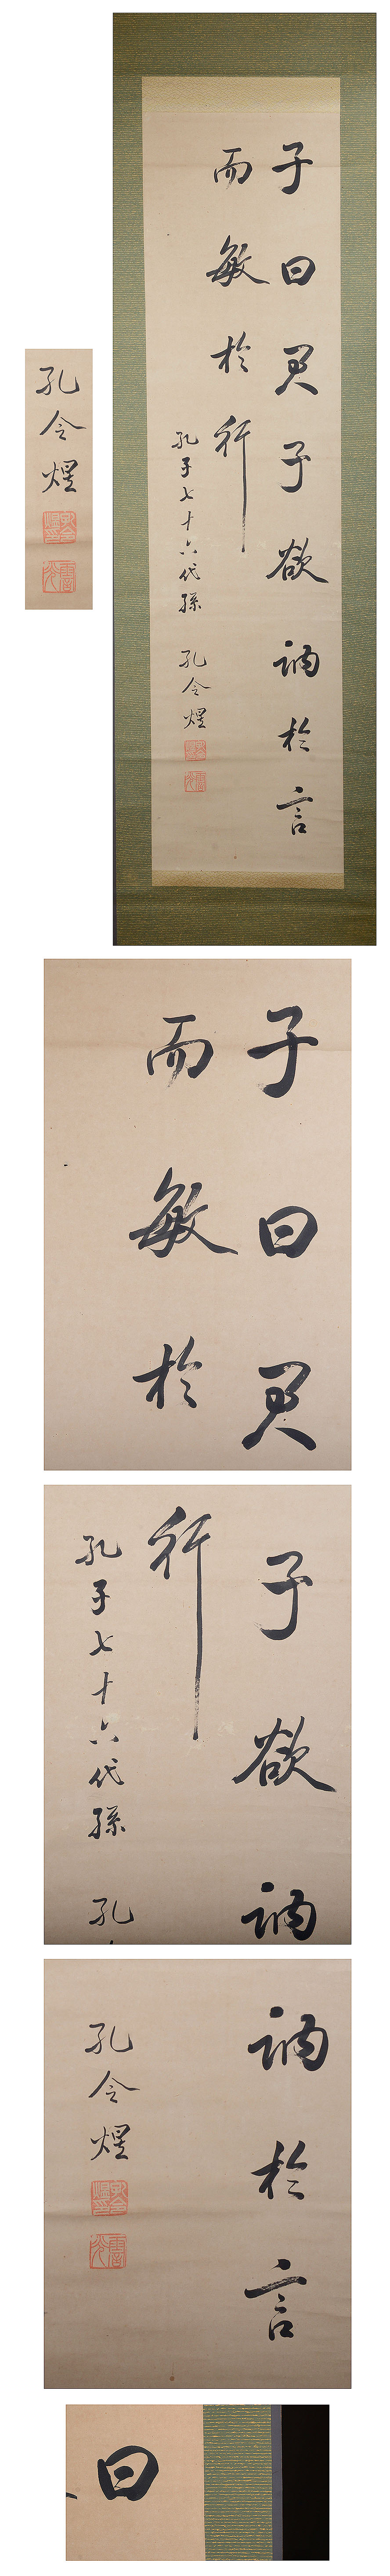 子曰君子欲訥於言
而敏於行
孔子七十六代孫 孔令煜
孔令煜
子曰君
而敏於
子欲訥
行
孔子七十六代孫 孔
訥於言
孔令煜
曰